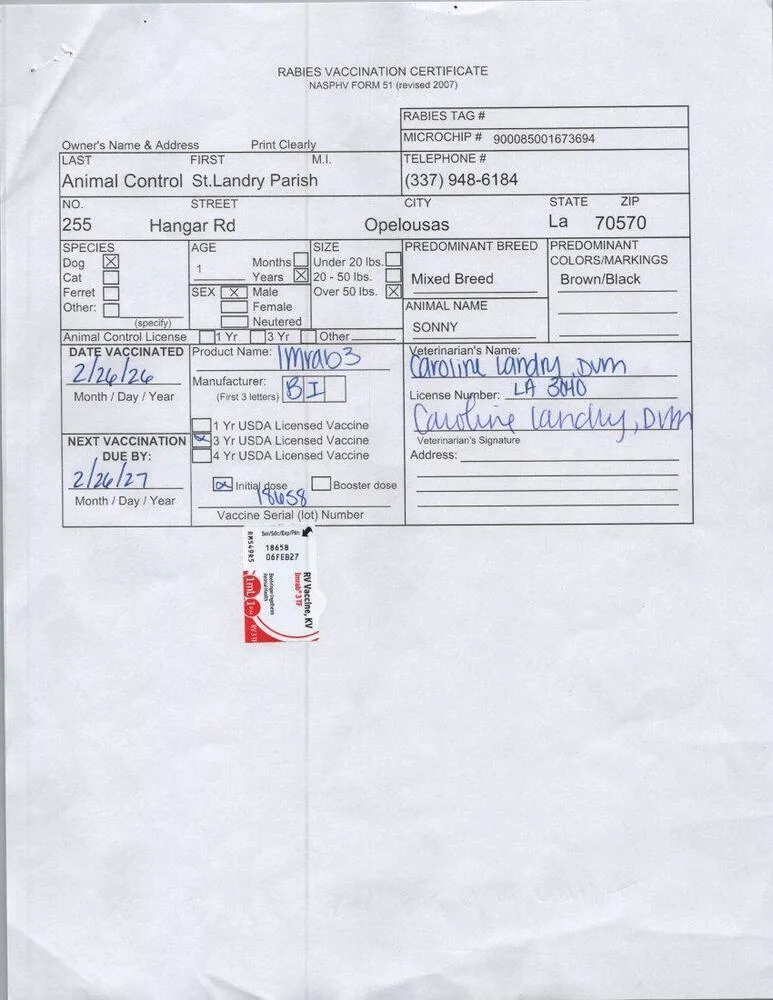 RABIES VACCINATION CERTIFICATE
NASPHV FORM 51 (revised 2007)
RABIES TAG #
MICROCHIP # 900085001673694
Owner's Name & Address Print Clearly
LAST FIRST M.I. TELEPHONE #
Animal Control St.Landry Parish (337) 948-6184
NO. STREET CITY STATE ZIP
255 Hangar Rd Opelousas La 70570
SPECIES AGE SIZE PREDOMINANT BREED PREDOMINANT
COLORS/MARKINGS
Dog Months Under 20 lbs.
Cat 1 Years 20 - 50 lbs. Mixed Breed Brown/Black
Ferret SEX Male Over 50 lbs.
Other: Female ANIMAL NAME
(specify) Neutered SONNY
Animal Control License 1 Yr 3 Yr Other
DATE VACCINATED Product Name: Imrab3 Veterinarian's Name:
2/26/26 Caroline Landry, DVM
Month / Day / Year Manufacturer: BI License Number: LA 3040
(First 3 letters)
1 Yr USDA Licensed Vaccine Caroline Landry, DVM
NEXT VACCINATION 3 Yr USDA Licensed Vaccine Veterinarian's Signature
DUE BY: 4 Yr USDA Licensed Vaccine Address:
2/26/27 Initial dose Booster dose
18658
Month / Day / Year
Vaccine Serial (lot) Number
Ser/Sér/Exp/Pér:
18658
06FEB27
RM549R5
RV Vaccine, KV
Imrab® 3 TF
Boehringer Ingelheim
Animal Health
1 mL 1
RV3 TF